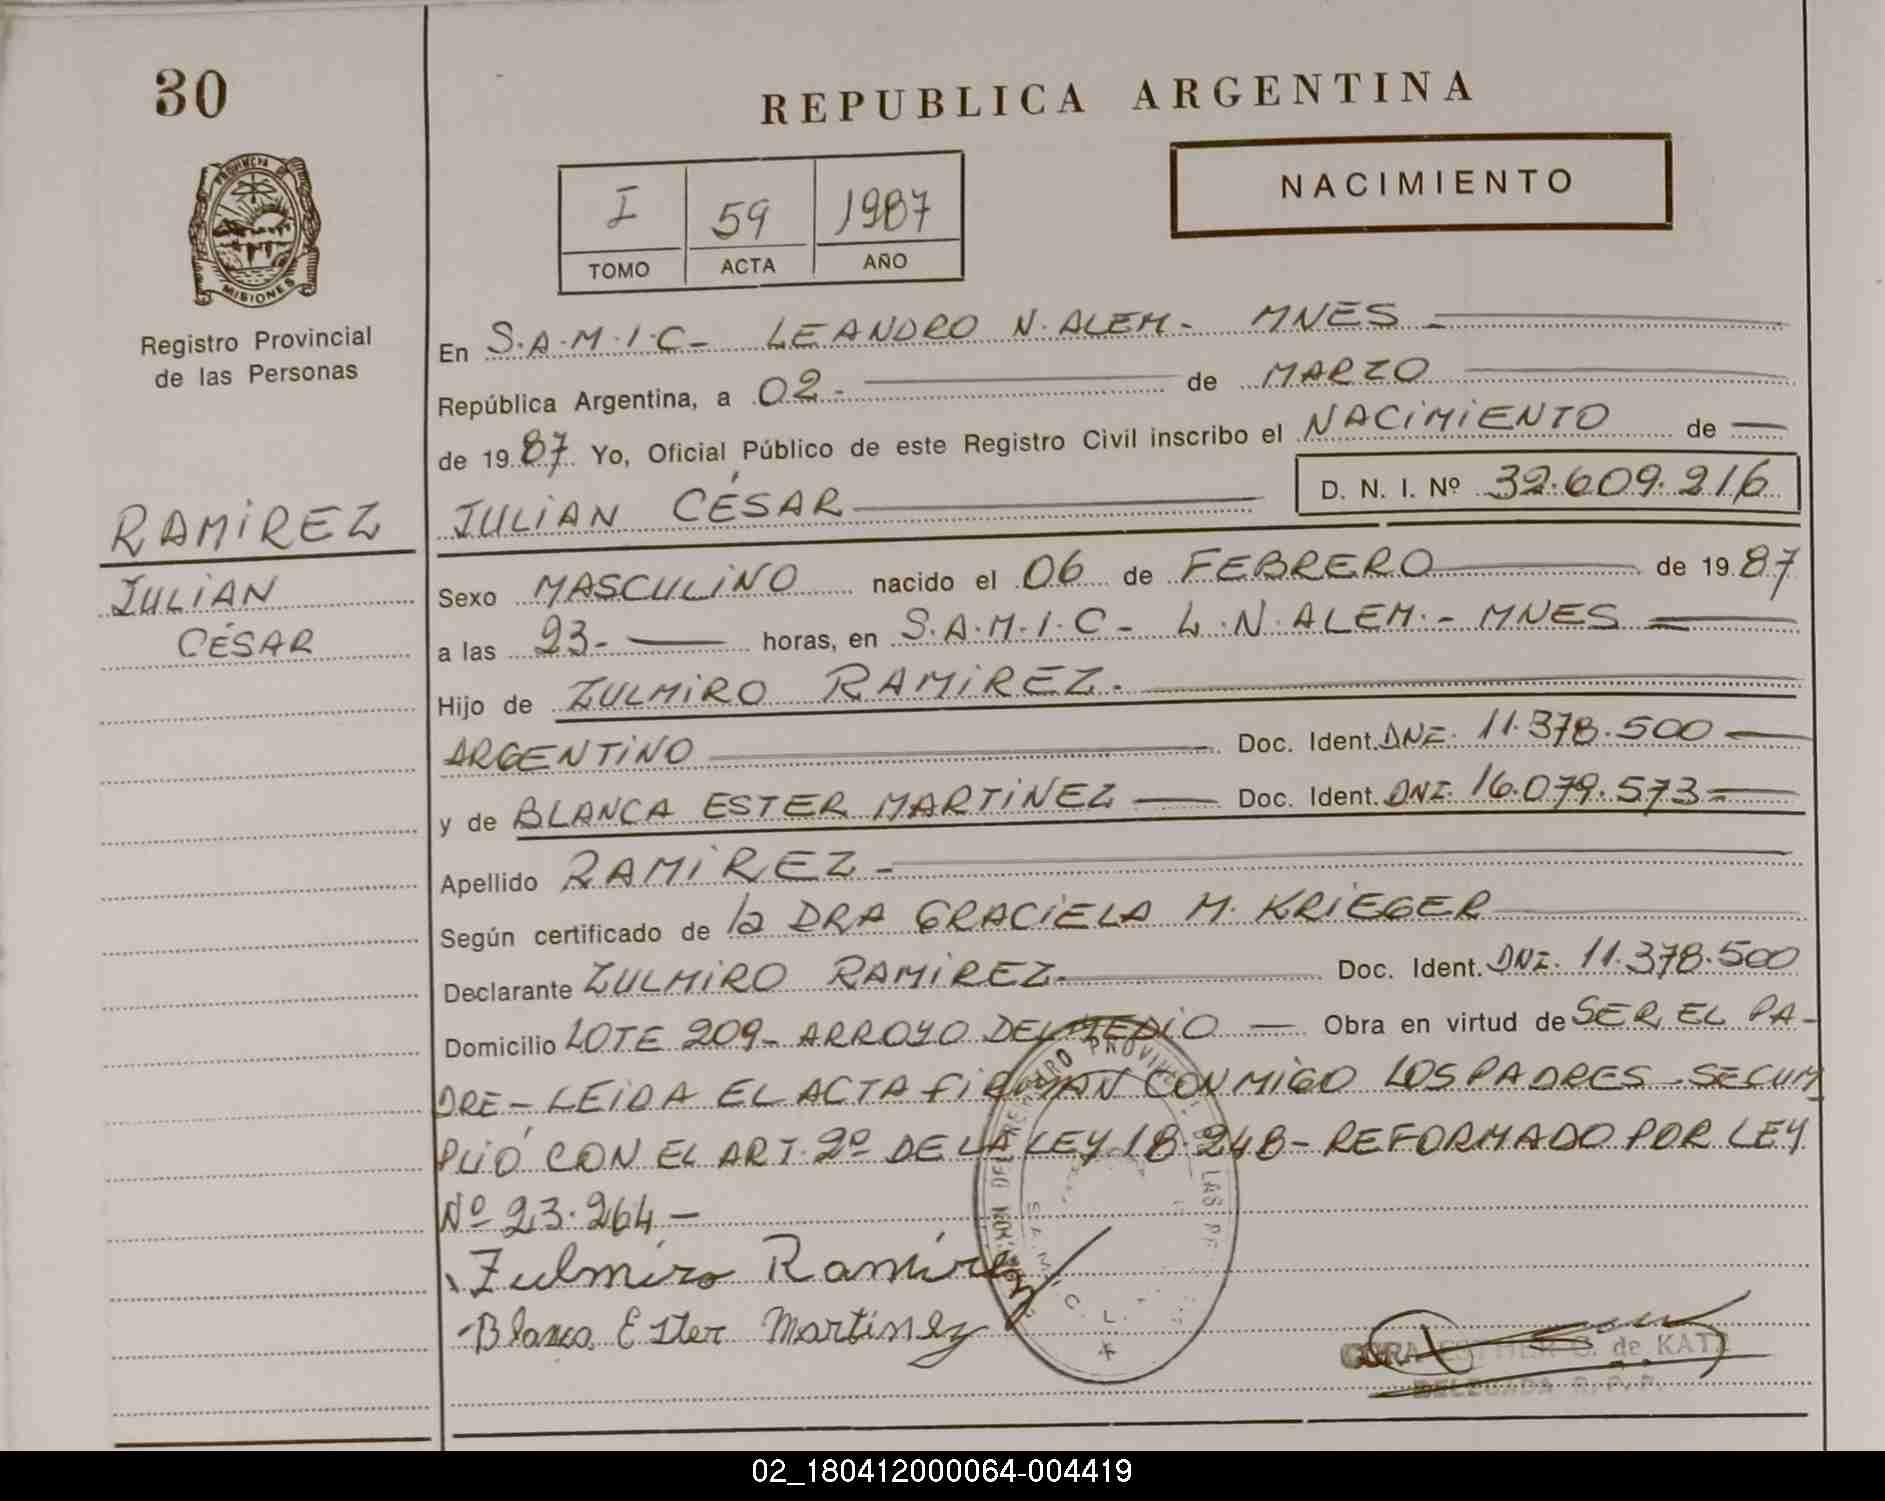 30
REPUBLICA ARGENTINA
PROVINCIA DE
MISIONES
Registro Provincial
de las Personas
I 59 1987
TOMO ACTA AÑO
NACIMIENTO
En S.A.M.I.C- LEANDRO N. ALEM- MNES
República Argentina, a 02- de MARZO
de 1987 Yo, Oficial Público de este Registro Civil inscribo el NACIMIENTO de
JULIAN CÉSAR D. N. I. Nº 32.609.216
RAMIREZ
JULIAN
CÉSAR
Sexo MASCULINO nacido el 06 de FEBRERO de 1987
a las 23- horas, en S.A.M.I.C- L.N. ALEM.- MNES
Hijo de ZULMIRO RAMIREZ.
ARGENTINO Doc. Ident. DNI. 11.378.500
y de BLANCA ESTER MARTINEZ Doc. Ident. DNI. 16.079.573
Apellido RAMIREZ-
Según certificado de la DRA GRACIELA M. KRIEGER
Declarante ZULMIRO RAMIREZ. Doc. Ident. DNI. 11.378.500
Domicilio LOTE 209- ARROYO DEL MEDIO Obra en virtud de SER EL PA-
DRE- LEIDA EL ACTA FIRMAN CONMIGO LOS PADRES. SE CUM
PLIÓ CON EL ART. 2º DE LA LEY 18.248- REFORMADO POR LEY
Nº 23.264-
Zulmiro Ramirez
Blanca Ester Martinez
ESTHER G. de KATZ
DELEGADA R.P.P.
02_180412000064-004419